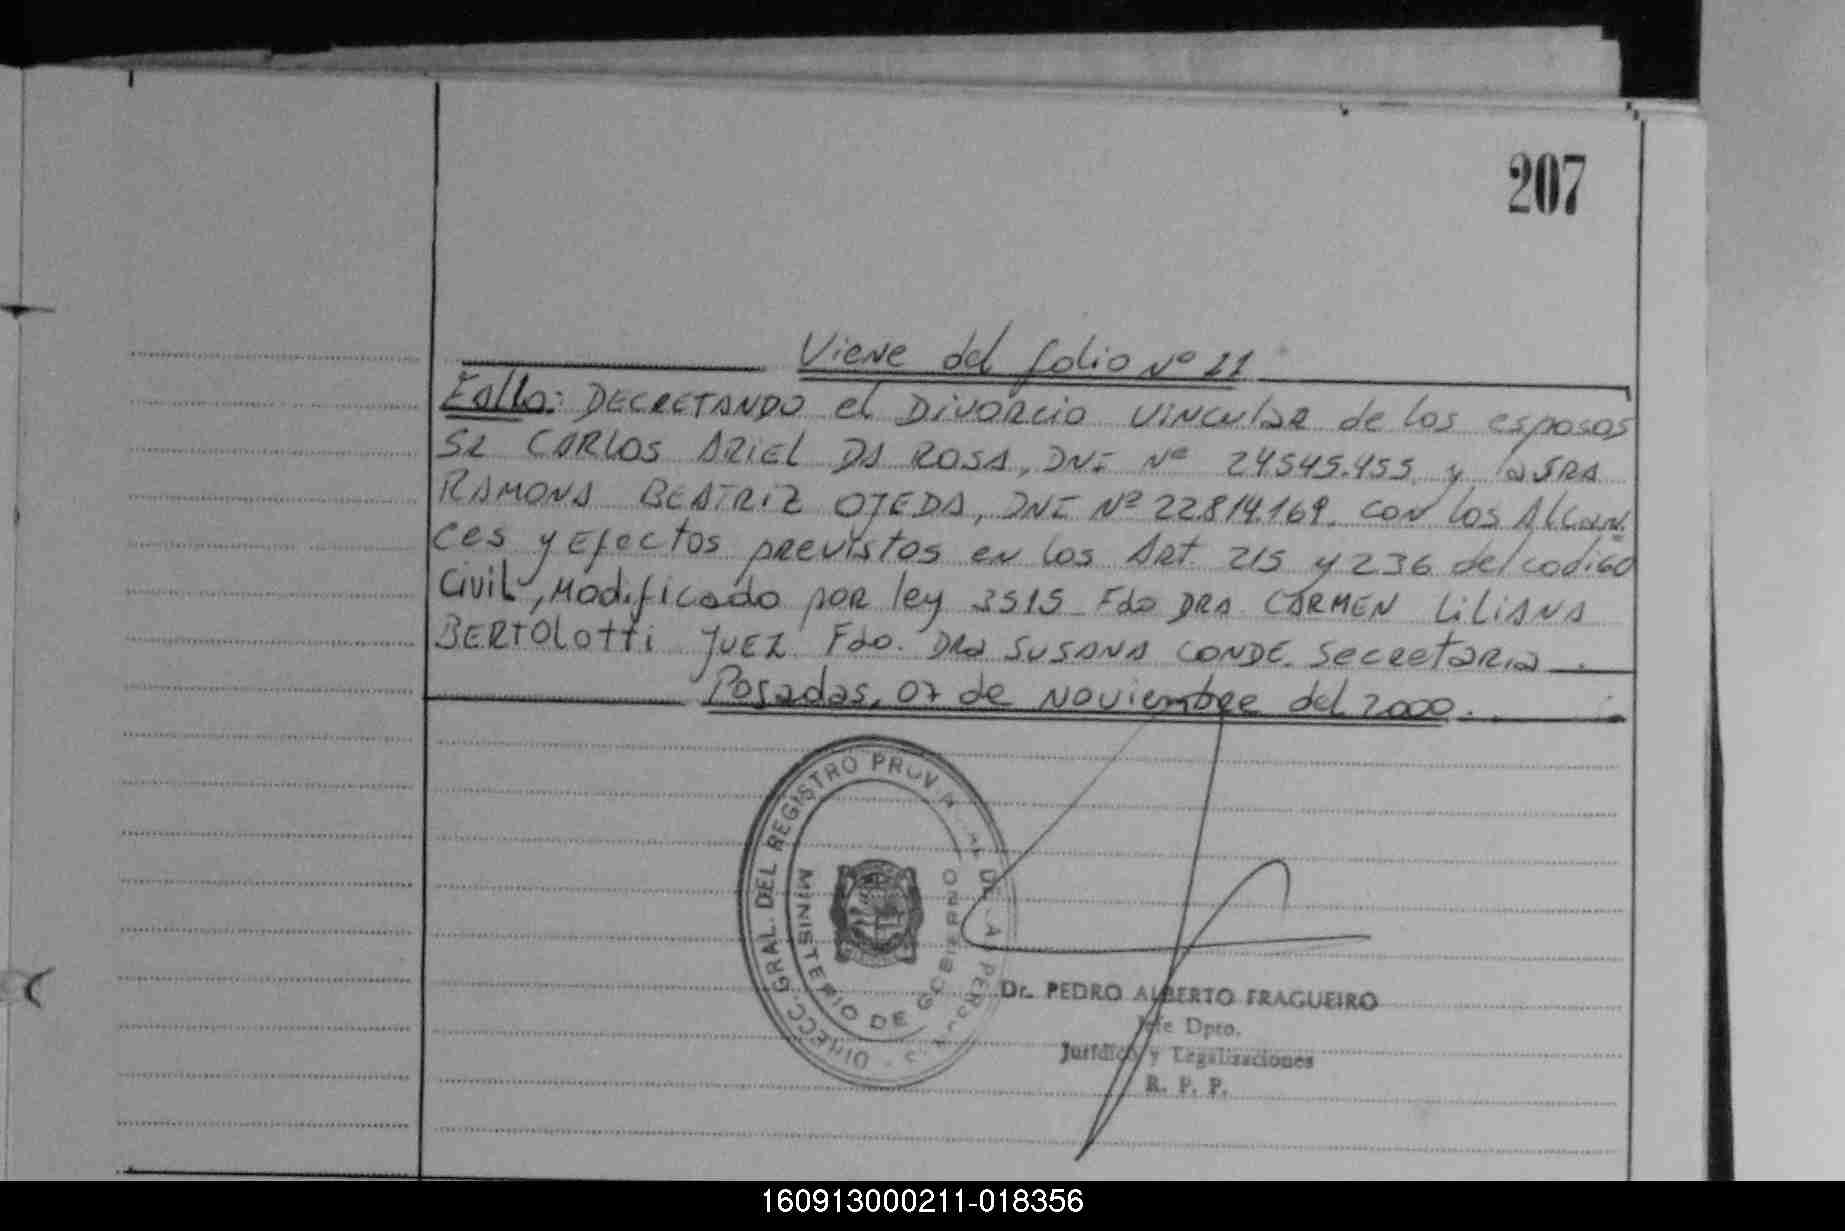 207
Viene del folio Nº 11
Fallo: DECRETANDO el Divorcio vincular de los esposos
SR CARLOS ARIEL DA ROSA, DNI Nº 24545.455 y la SRA
RAMONA BEATRIZ OJEDA, DNI Nº 22.814.169. con los Alcan-
ces y Efectos previstos en los Art. 215 y 236 del codigo
Civil, Modificado por ley 3515 Fdo DRA CARMEN LiLiANA
BERTOLOTTI JUEZ Fdo. DRA SUSANA CONDE. Secretaria
Posadas, 07 de Noviembre del 2000.
DIRECC. GRAL. DEL REGISTRO PROV DE LA
MINISTERIO DE GOBIERNO
Dr. PEDRO ALBERTO FRAGUEIRO
Jefe Dpto.
Jurídico y Legalizaciones
R. P. P.
160913000211-018356